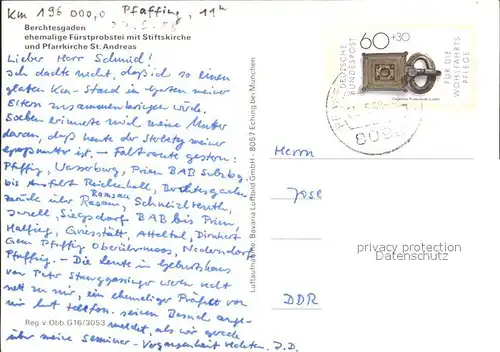 Km 196 000,0 Pfaffing, 11h
Berchtesgaden
ehemalige Fürstprobstei mit Stiftskirche
und Pfarrkirche St. Andreas
Lieber Herr Schmid!
Ich dachte nicht, daß ich so einen
glatten Km-Stand im Garten meiner
Eltern zusammenbringen würde.
Soeben erinnerte mich meine Mutter
daran, daß heute der Sterbetag meiner
Großmutter ist. – Fahrtroute gestern:
Pfaffing, Wasserburg, Prien BAB Salzbg.
bis Ausfahrt Reichenhall, Berchtesgaden
zurück über Ramsau, Schneizlreuth,
Inzell, Siegsdorf BAB bis Prien,
Halfing, Griesstätt, Attel,
Gem Pfaffing Oberübermoos,
Pfaffing. – Die Leute im Geburtshaus
von Peter waren recht
nett zu mir, ein ehemaliger Präfekt von
mir hat telefon. seinen Besuch ange-
meldet, als wir gerade
über meine Seminar-Vergangenheit
Reg. v. Obb. G16/3053
Luftaufnahme: Bavaria Luftbild GmbH - 8057 Eching bei München
DEUTSCHE
BUNDESPOST
60+30
FÜR DIE
WOHLFAHRTS
PFLEGE
Herrn
Jose
DDR
privacy protection
Datenschutz